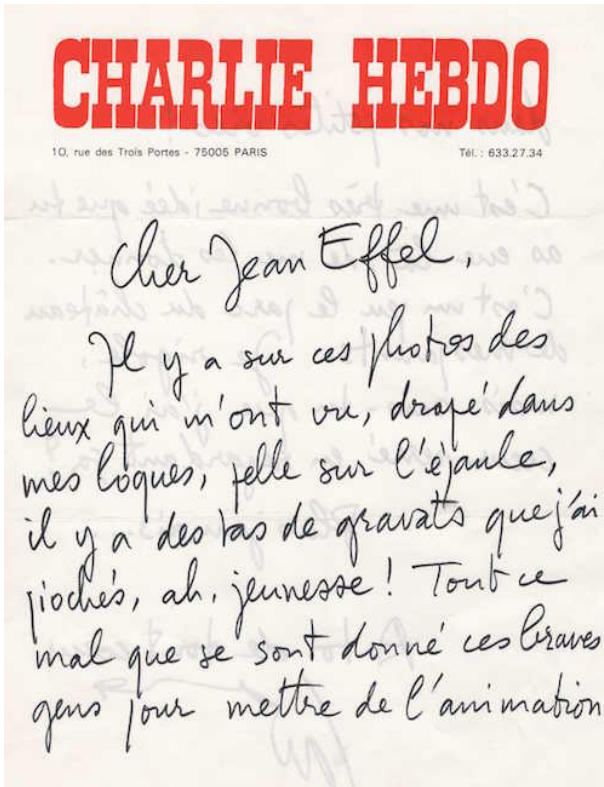 CHARLIE HEBDO
10, rue des Trois Portes - 75005 PARIS
Tél. : 633.27.34
Cher Jean Effel,
Il y a sur ces photos des
lieux qui m'ont vu, drapé dans
mes loques, pelle sur l'épaule,
il y a des tas de gravats que j'ai
piochés, ah, jeunesse ! Tout ce
mal que se sont donné ces braves
gens pour mettre de l'animation